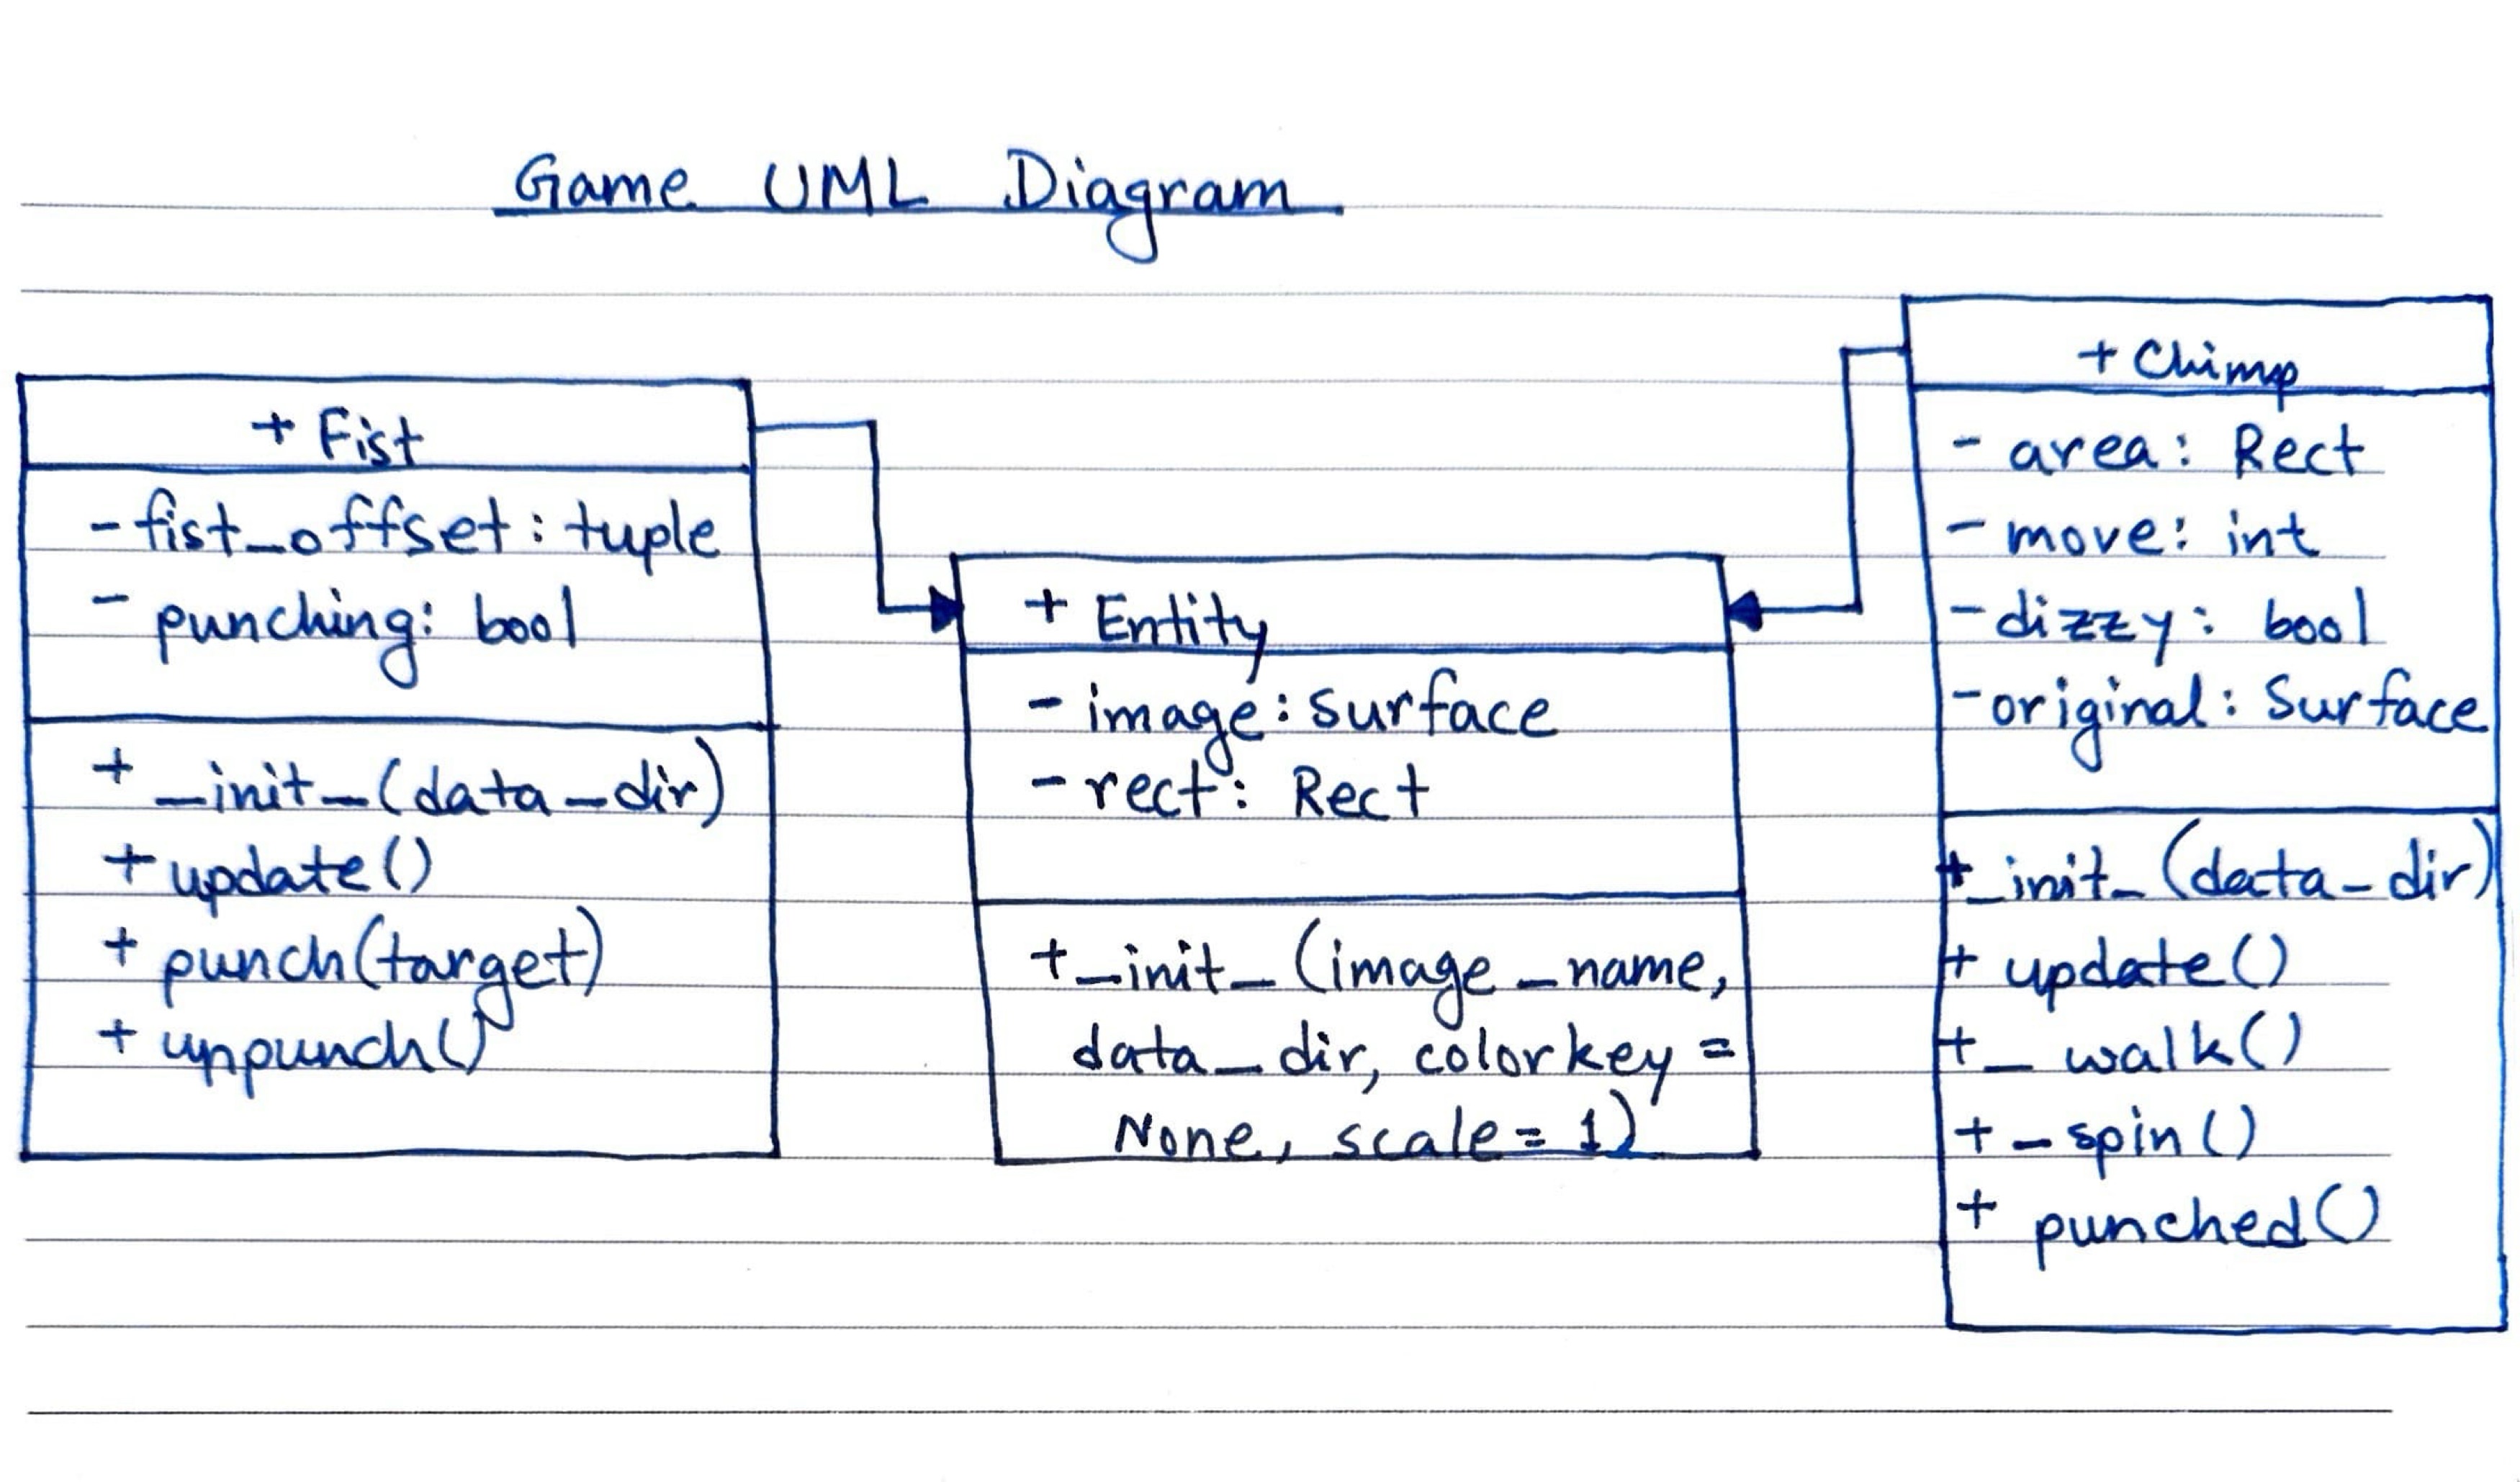 Game UML Diagram
+ Fist
- fist_offset: tuple
- punching: bool
+ _init_(data_dir)
+ update()
+ punch(target)
+ unpunch()
+ Entity
- image: surface
- rect: Rect
+ _init_(image_name,
data_dir, colorkey =
None, scale = 1)
+ Chimp
- area: Rect
- move: int
- dizzy: bool
- original: Surface
+ _init_(data_dir)
+ update()
+ _walk()
+ _spin()
+ punched()